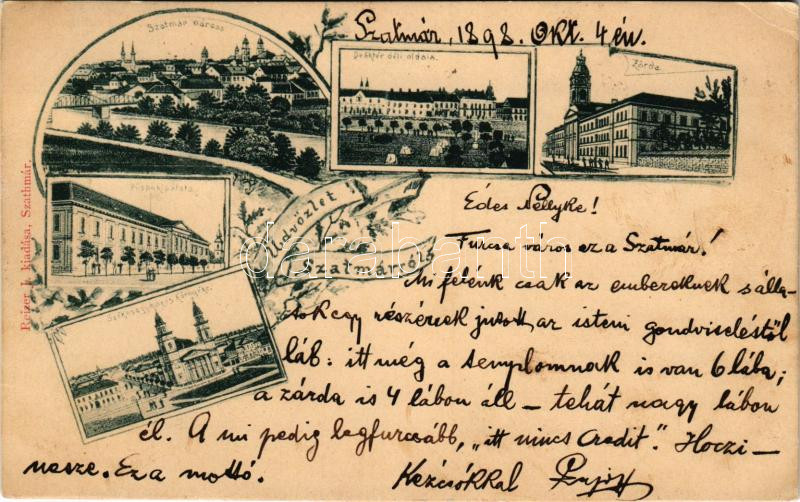 Szatmár, 1898. Okt. 4én.
Szatmár város
Deáktér déli oldala.
Zárda.
Püspöki palota.
Székesegyház és környéke.
Üdvözlet
Szatmárról
Reizer J. kiadása, Szathmár.
darabanth
Édes Nellyke!
Furcsa város ez a Szatmár!
Mi felénk csak az embereknek s álla-
tok egy részének jutott az isteni gondviseléstől
láb: itt még a templomnak is van 6 lába;
a zárda is 4 lábon áll – tehát nagy lábon
él. A mi pedig legfurcsább, „itt nincs Credit". Hoczi-
nesze. Ez a mottó.
Kézcsókkal